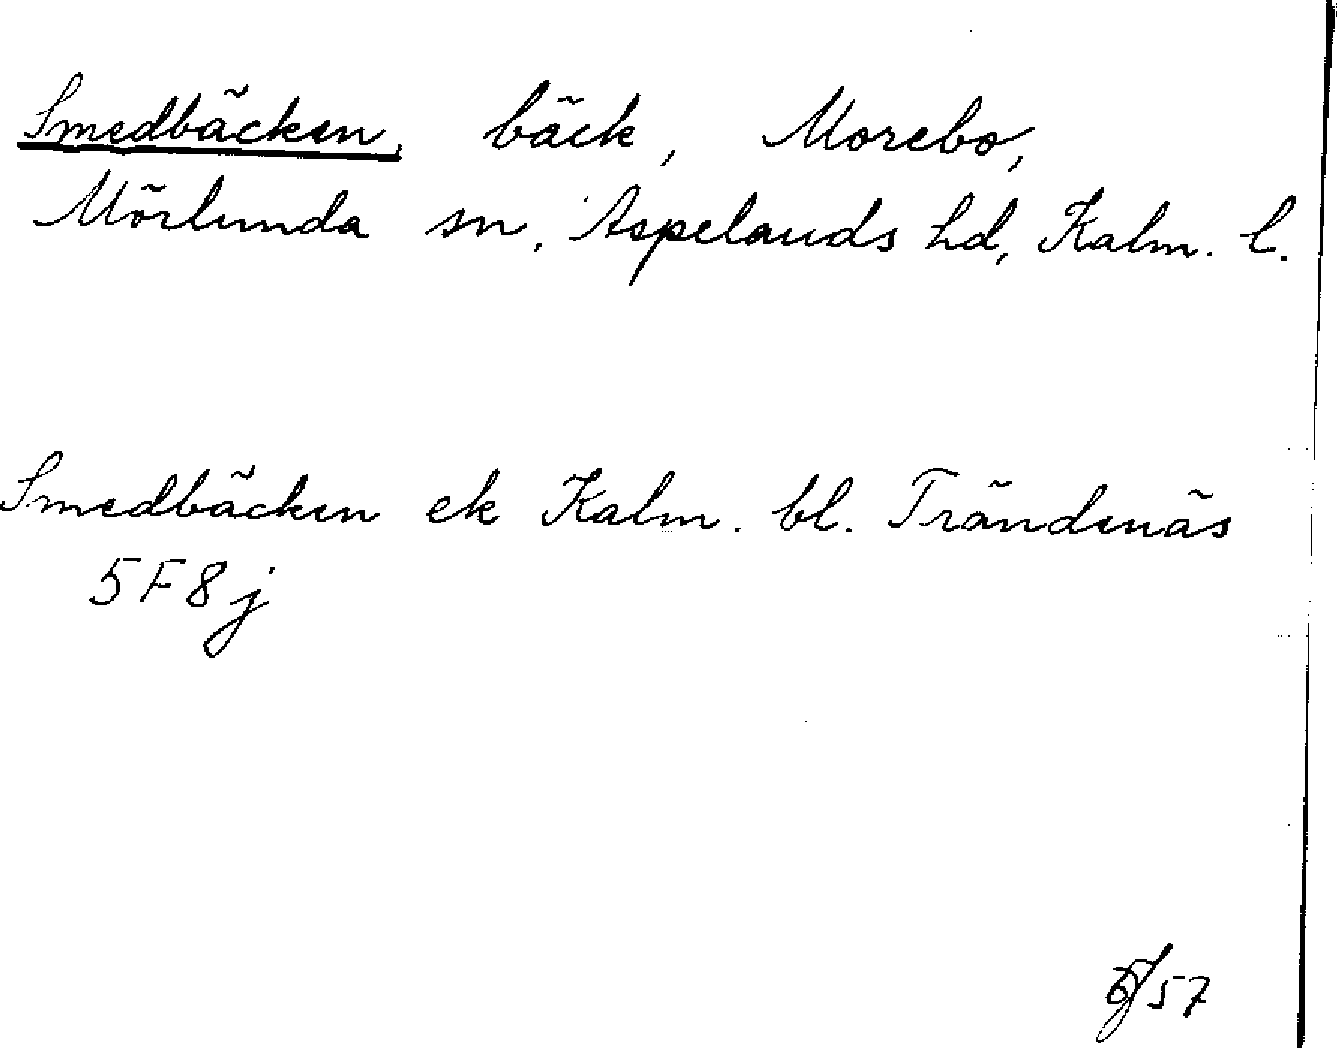 Smedbäcken, bäck, Morebo,
Mörlunda sn, Aspelands hd, Kalm. l.
Smedbäcken ek Kalm. bl. Trändenäs
5F8j
57